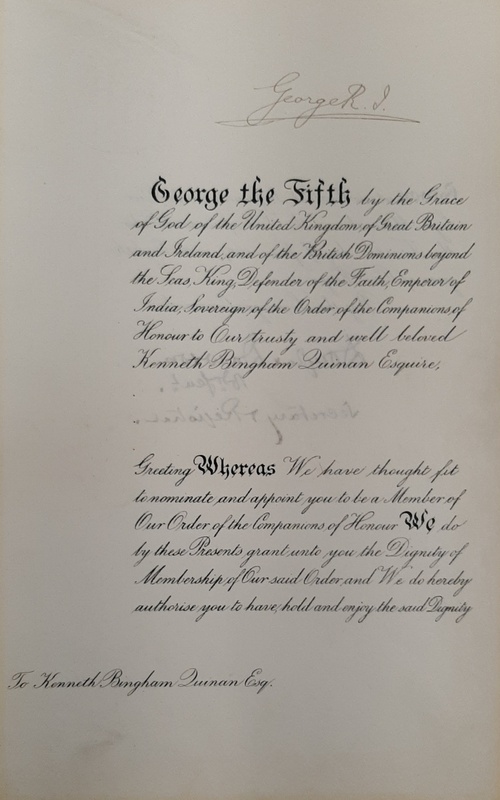 George R. I.
George the Fifth by the Grace
of God of the United Kingdom of Great Britain
and Ireland, and of the British Dominions beyond
the Seas, King, Defender of the Faith, Emperor of
India, Sovereign of the Order of the Companions of
Honour to Our trusty and well beloved
Kenneth Bingham Quinan Esquire,
Greeting Whereas We have thought fit
to nominate and appoint you to be a Member of
Our Order of the Companions of Honour We do
by these Presents grant unto you the Dignity of
Membership of Our said Order, and We do hereby
authorise you to have, hold and enjoy the said Dignity
To Kenneth Bingham Quinan Esq.